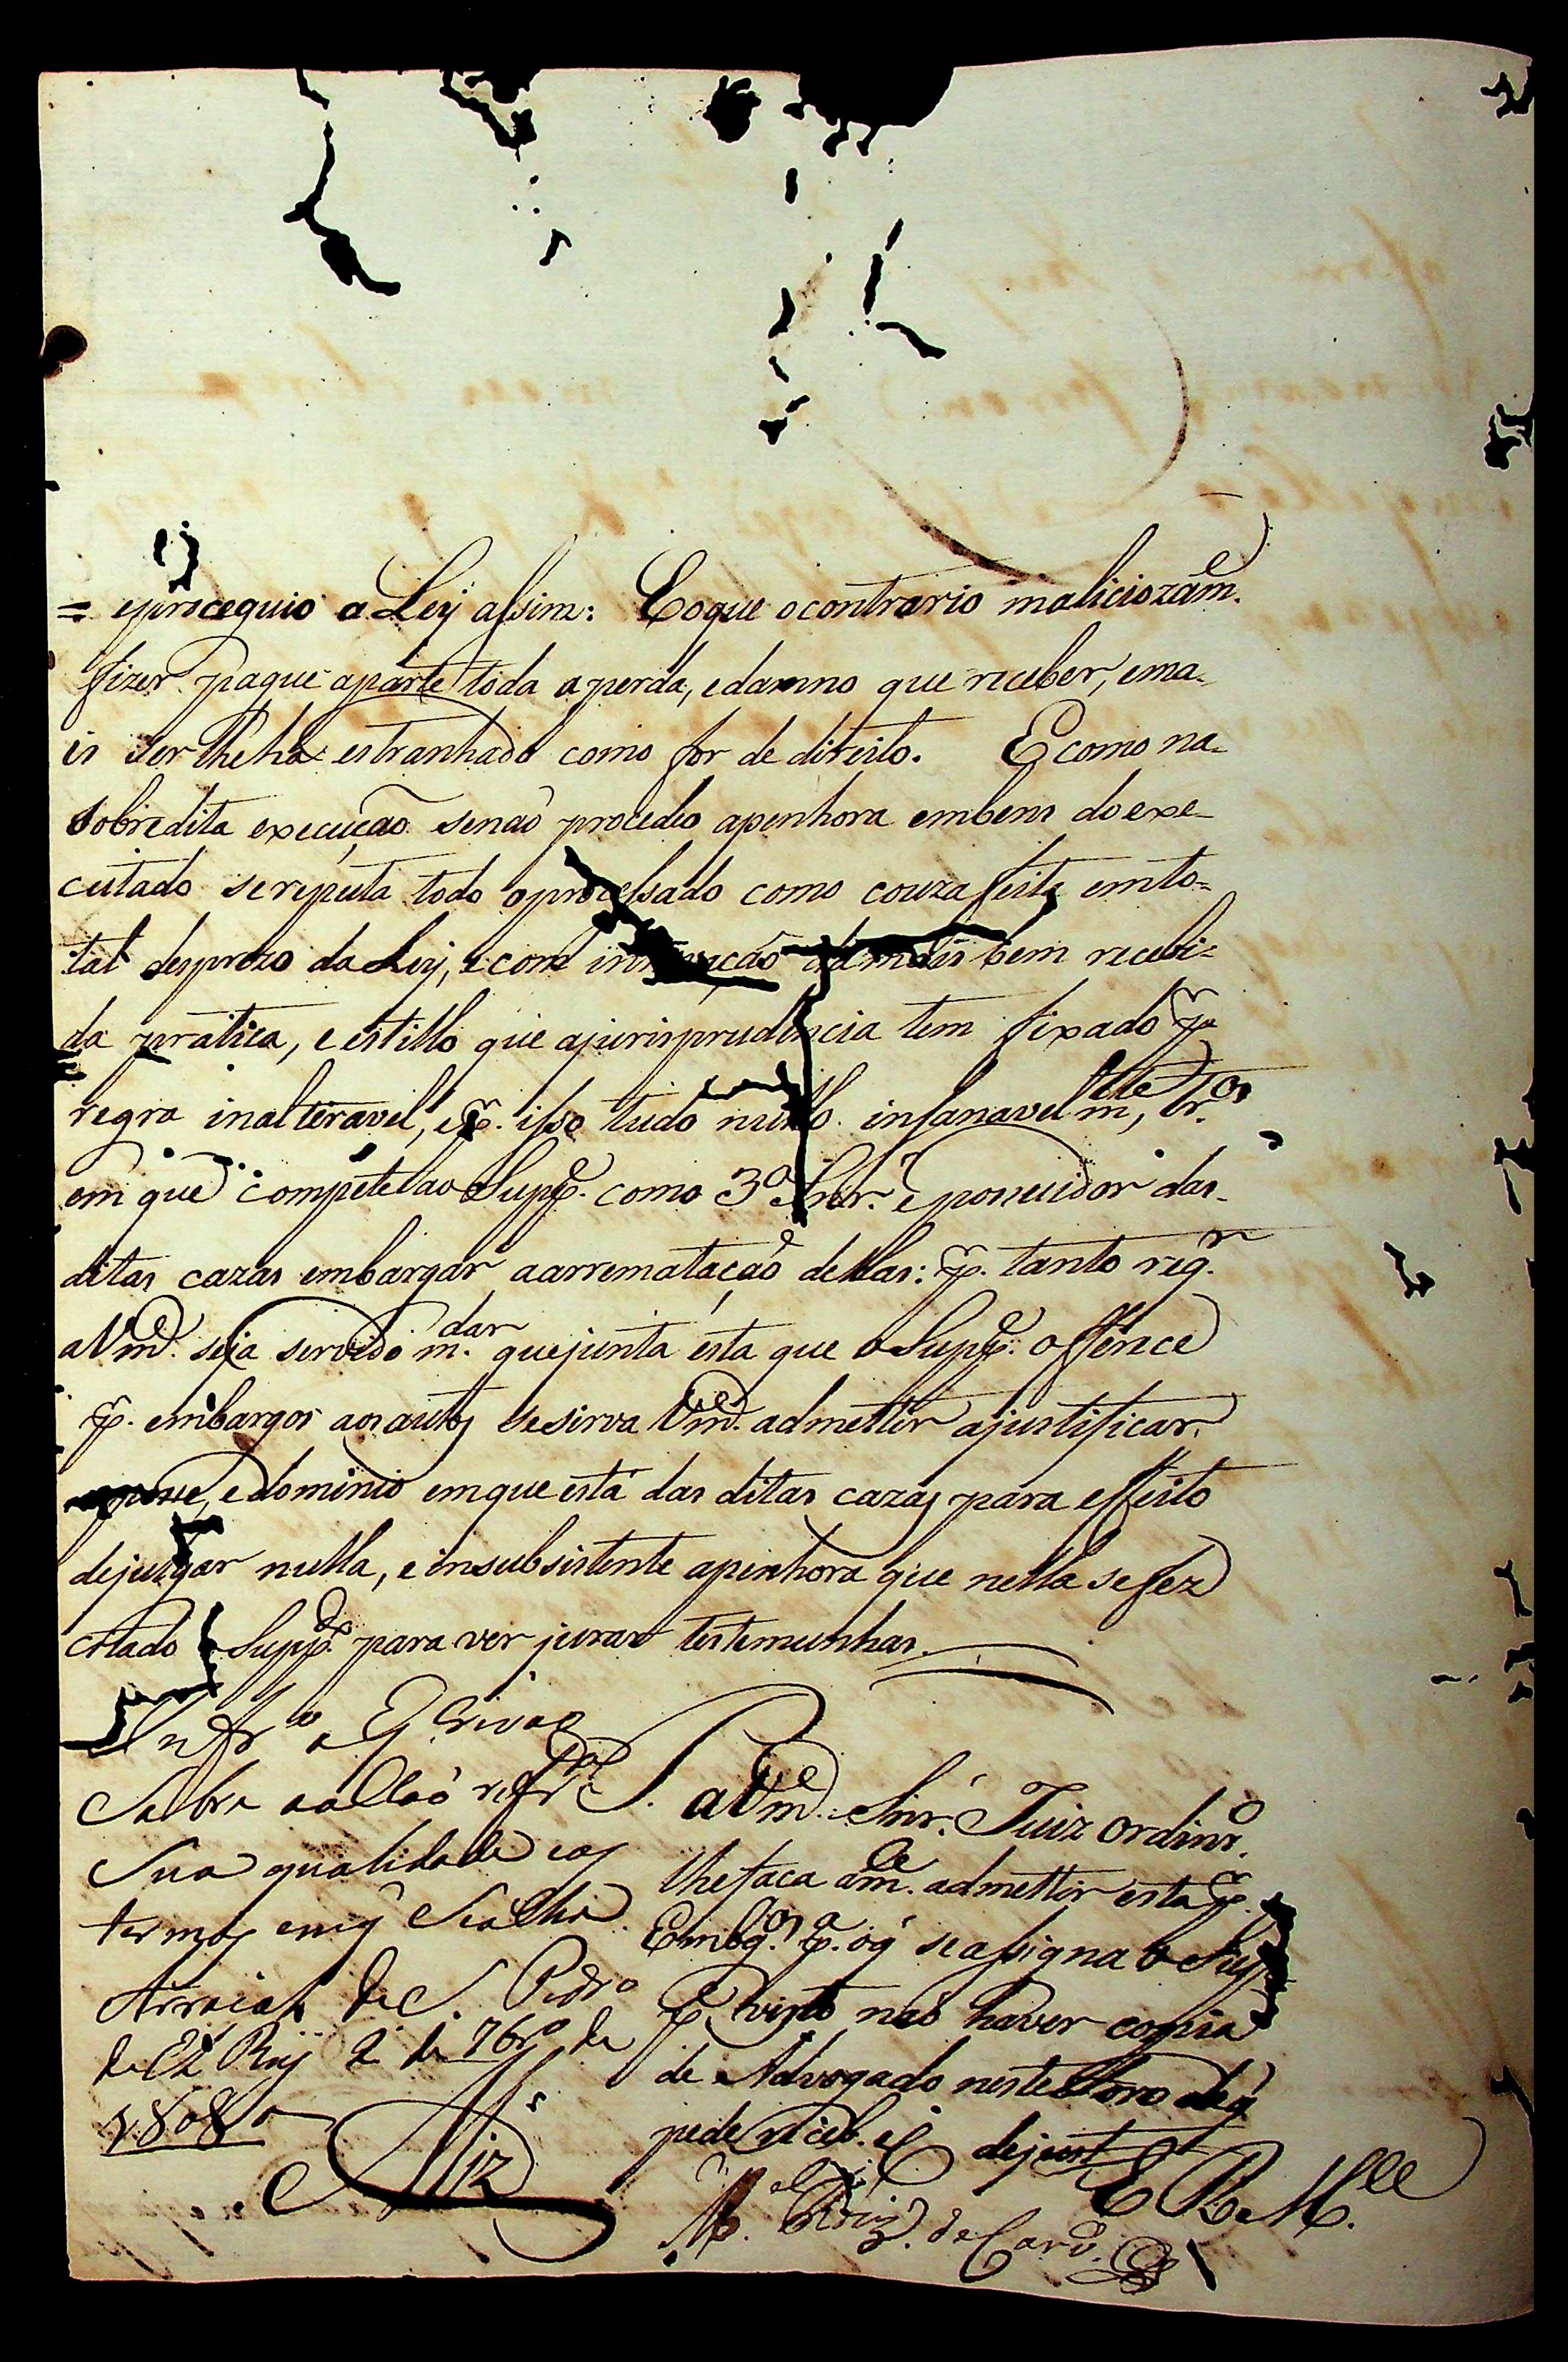 = eprocequio a Ley assim: Eoque ocontrario maliciozam.e
fizer pague aparte toda aperda, edamno que receber, ema-
is ser lheha estranhado como for de direito. Ecomo na-
sobredita execução senaõ procedeo apenhora embens doexe-
cutado sereputa todo oprocessado como couza feita emto-
tal desprezo da Ley, ecom bem recebi-
da pratica, eestillo que ajurisprudencia tem fixado p.r
regra inalteravel, ep.r isso tudo nullo insanavelm.te,
em que compete ao Supp.e como 3.o Snr. e possuidor das-
ditas cazas embargar aarremataçaõ dellas: p.r tanto req.r
aVm.e seja servido m.dar quejunta esta que oSupp.e offerece
p.r embargos aosautos sesirva Vm.e admettir ajustificar
aposse, edominio emqueestá das ditas cazas para effeito
dejulgar nulla, einsubsistente apenhora que nella sefez
citado Supp.do para ver jurar testemunhas.
Inf o Escrivaõ
Sobre
Sua qualidade eos
termos emq̃ Seacha
Arraial de S. Pedro
de El Rey 2 de 9br.o de
1808
P. aVm.e Snr. Juiz ordinr.o
lhefaca am.ce admettir esta p.r
Embg.os p.a oq̃ seassigna oSup-
p.e visto naõ haver copia
de Advogado neste Foro deq̃
pede receb. dejust
E R M.ce
M.el Roiz. de Carv.o